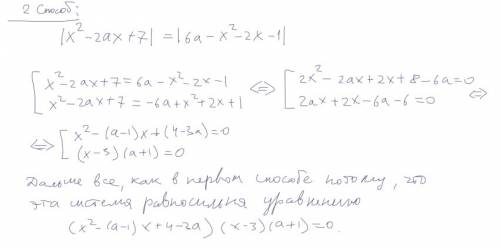 2 способ:
|x²-2ax+7| = |6a-x²-2x-1|
[ x²-2ax+7=6a-x²-2x-1 <=> [ 2x²-2ax+2x+8-6a=0
x²-2ax+7=-6a+x²+2x+1 2ax+2x-6a-6=0 <=>
<=> [ x²-(a-1)x+(4-3a)=0
(x-3)(a+1)=0
Дальше все, как в первом способе потому, что
эта система равносильна уравнению
(x²-(a-1)x+4-3a)(x-3)(a+1)=0.